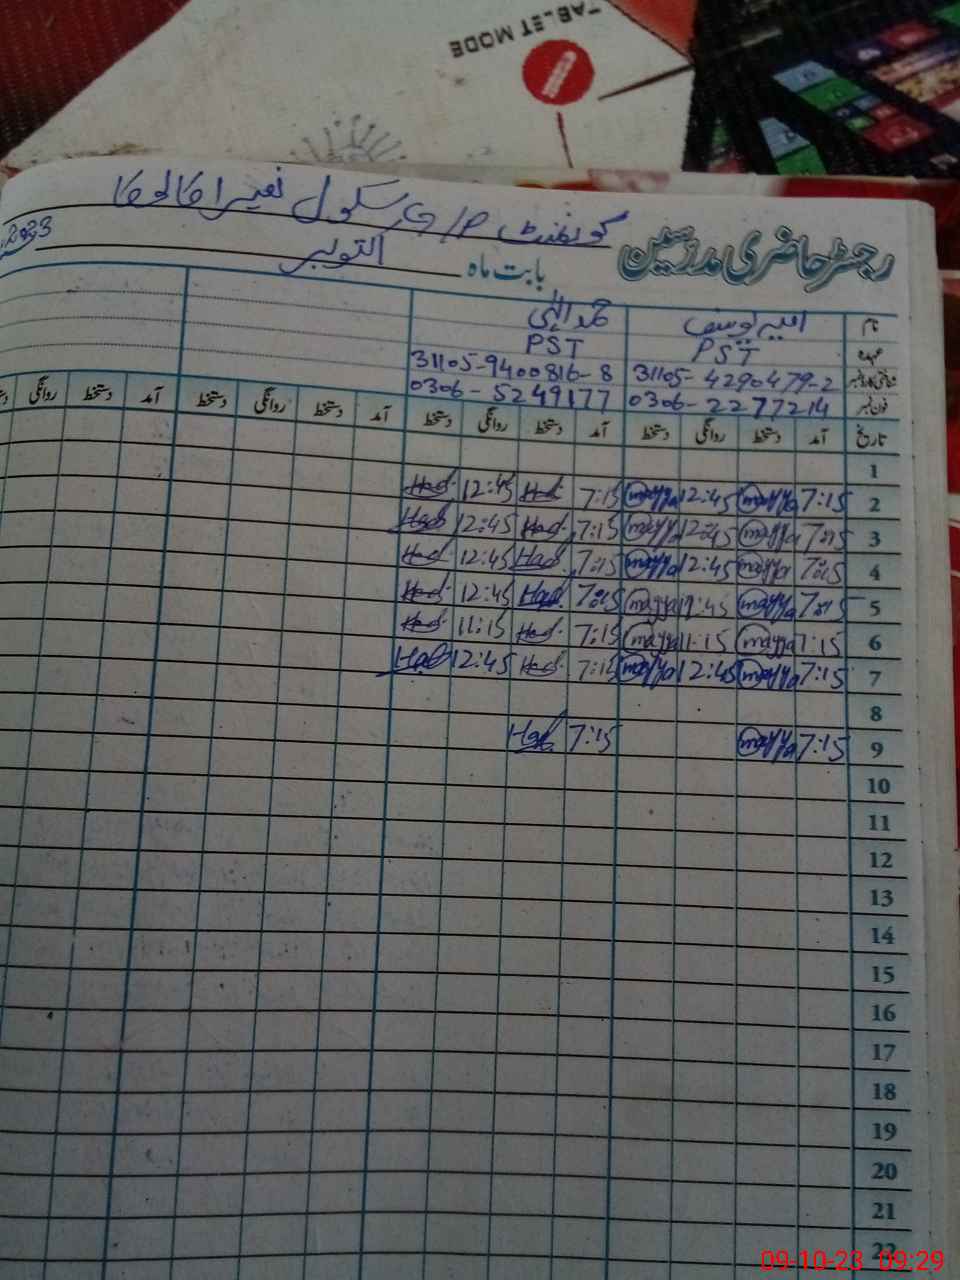 TABLET MODE
گورنمنٹ سکول
رجسٹر حاضری مدرسین
بابت ماہ اکتوبر 2023
نام
PST PST
شناختی کارڈ نمبر 31105-4290479-2 31105-9400816-8
فون نمبر 0306-2277214 0306-5249177
تاریخ آمد دستخط روانگی دستخط آمد دستخط روانگی دستخط آمد دستخط روانگی دستخط آمد دستخط روانگی
1
2 7:15 mayya 12:45 mayya 7:15 Had 12:45 Had
3 7:15 mayya 12:45 mayya 7:15 Had 12:45 Had
4 7:15 mayya 12:45 mayya 7:15 Had 12:45 Had
5 7:15 mayya 12:45 mayya 7:15 Had 12:45 Had
6 7:15 mayya 11:15 mayya 7:15 Had 11:15 Had
7 7:15 mayya 12:45 mayya 7:15 Had 12:45 Had
8
9 7:15 mayya 7:15 Had
10
11
12
13
14
15
16
17
18
19
20
21
22
09-10-23 09:29